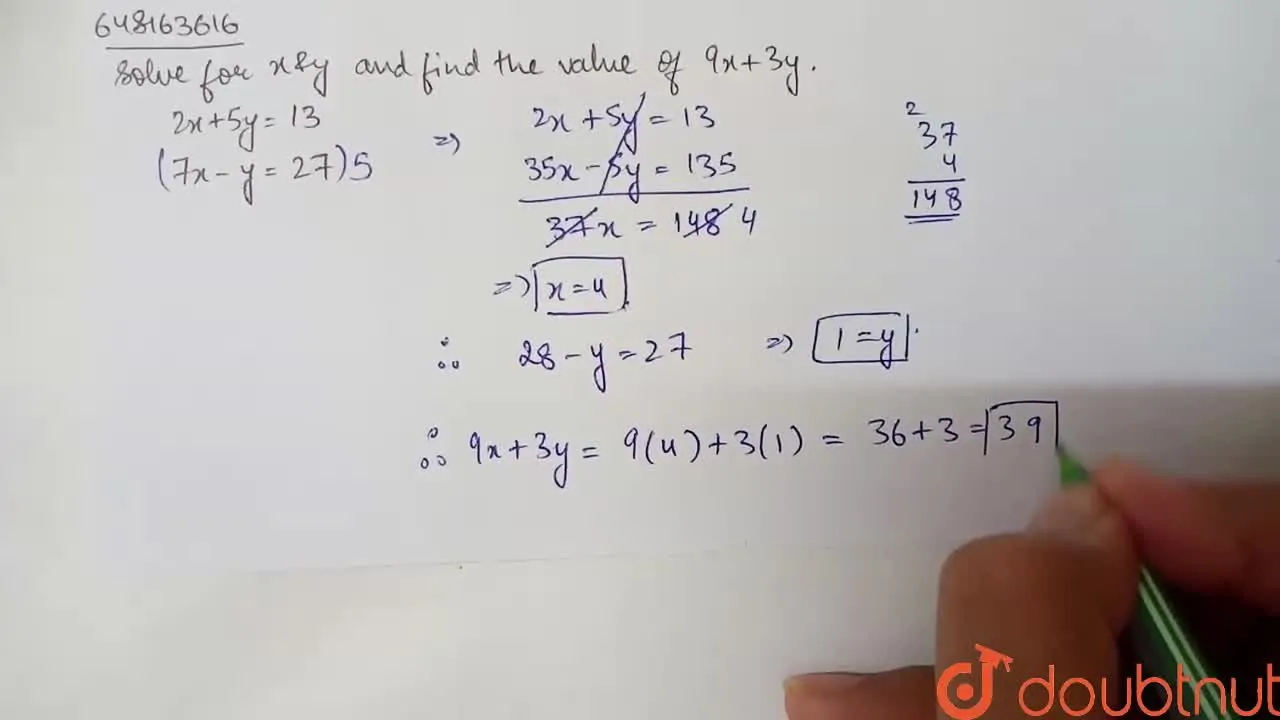 648163616
Solve for x & y and find the value of 9x+3y.
2x+5y=13
(7x-y=27)5
=> 2x+5y=13
35x-5y=135
37x=148 4
2
37
4
148
=> x=4
∴ 28-y=27 => 1=y
∴ 9x+3y= 9(4)+3(1) = 36+3=39
doubtnut